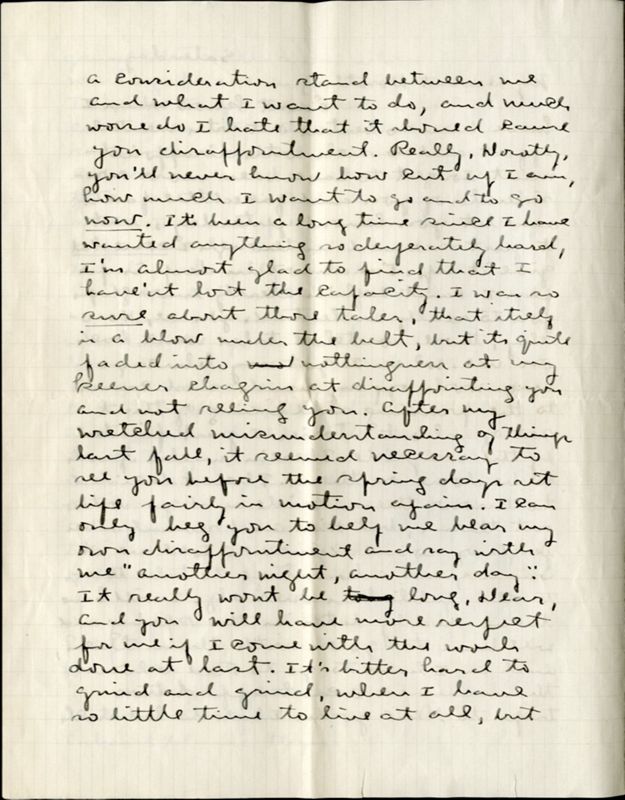 a consideration stand between me
and what I want to do, and much
worse do I hate that it should cause
you disappointment. Really, Dorothy,
you'll never know how cut up I am,
how much I want to go and to go
now. It's been a long time since I have
wanted anything so desperately hard,
I'm almost glad to find that I
have'nt lost the capacity. I was so
sure about those tales, that itself
is a blow under the belt, but its quite
faded into nothingness at my
keener chagrin at disappointing you
and not seeing you. After my
wretched misunderstanding of things
last fall, it seemed necessary to
see you before the spring days set
life fairly in motion again. I can
only beg you to help me bear my
own disappointment and say with
me "another night, another day".
It really wont be long, Dear,
and you will have more respect
for me if I come with the work
done at last. It's bitter hard to
grind and grind, when I have
so little time to live at all, but